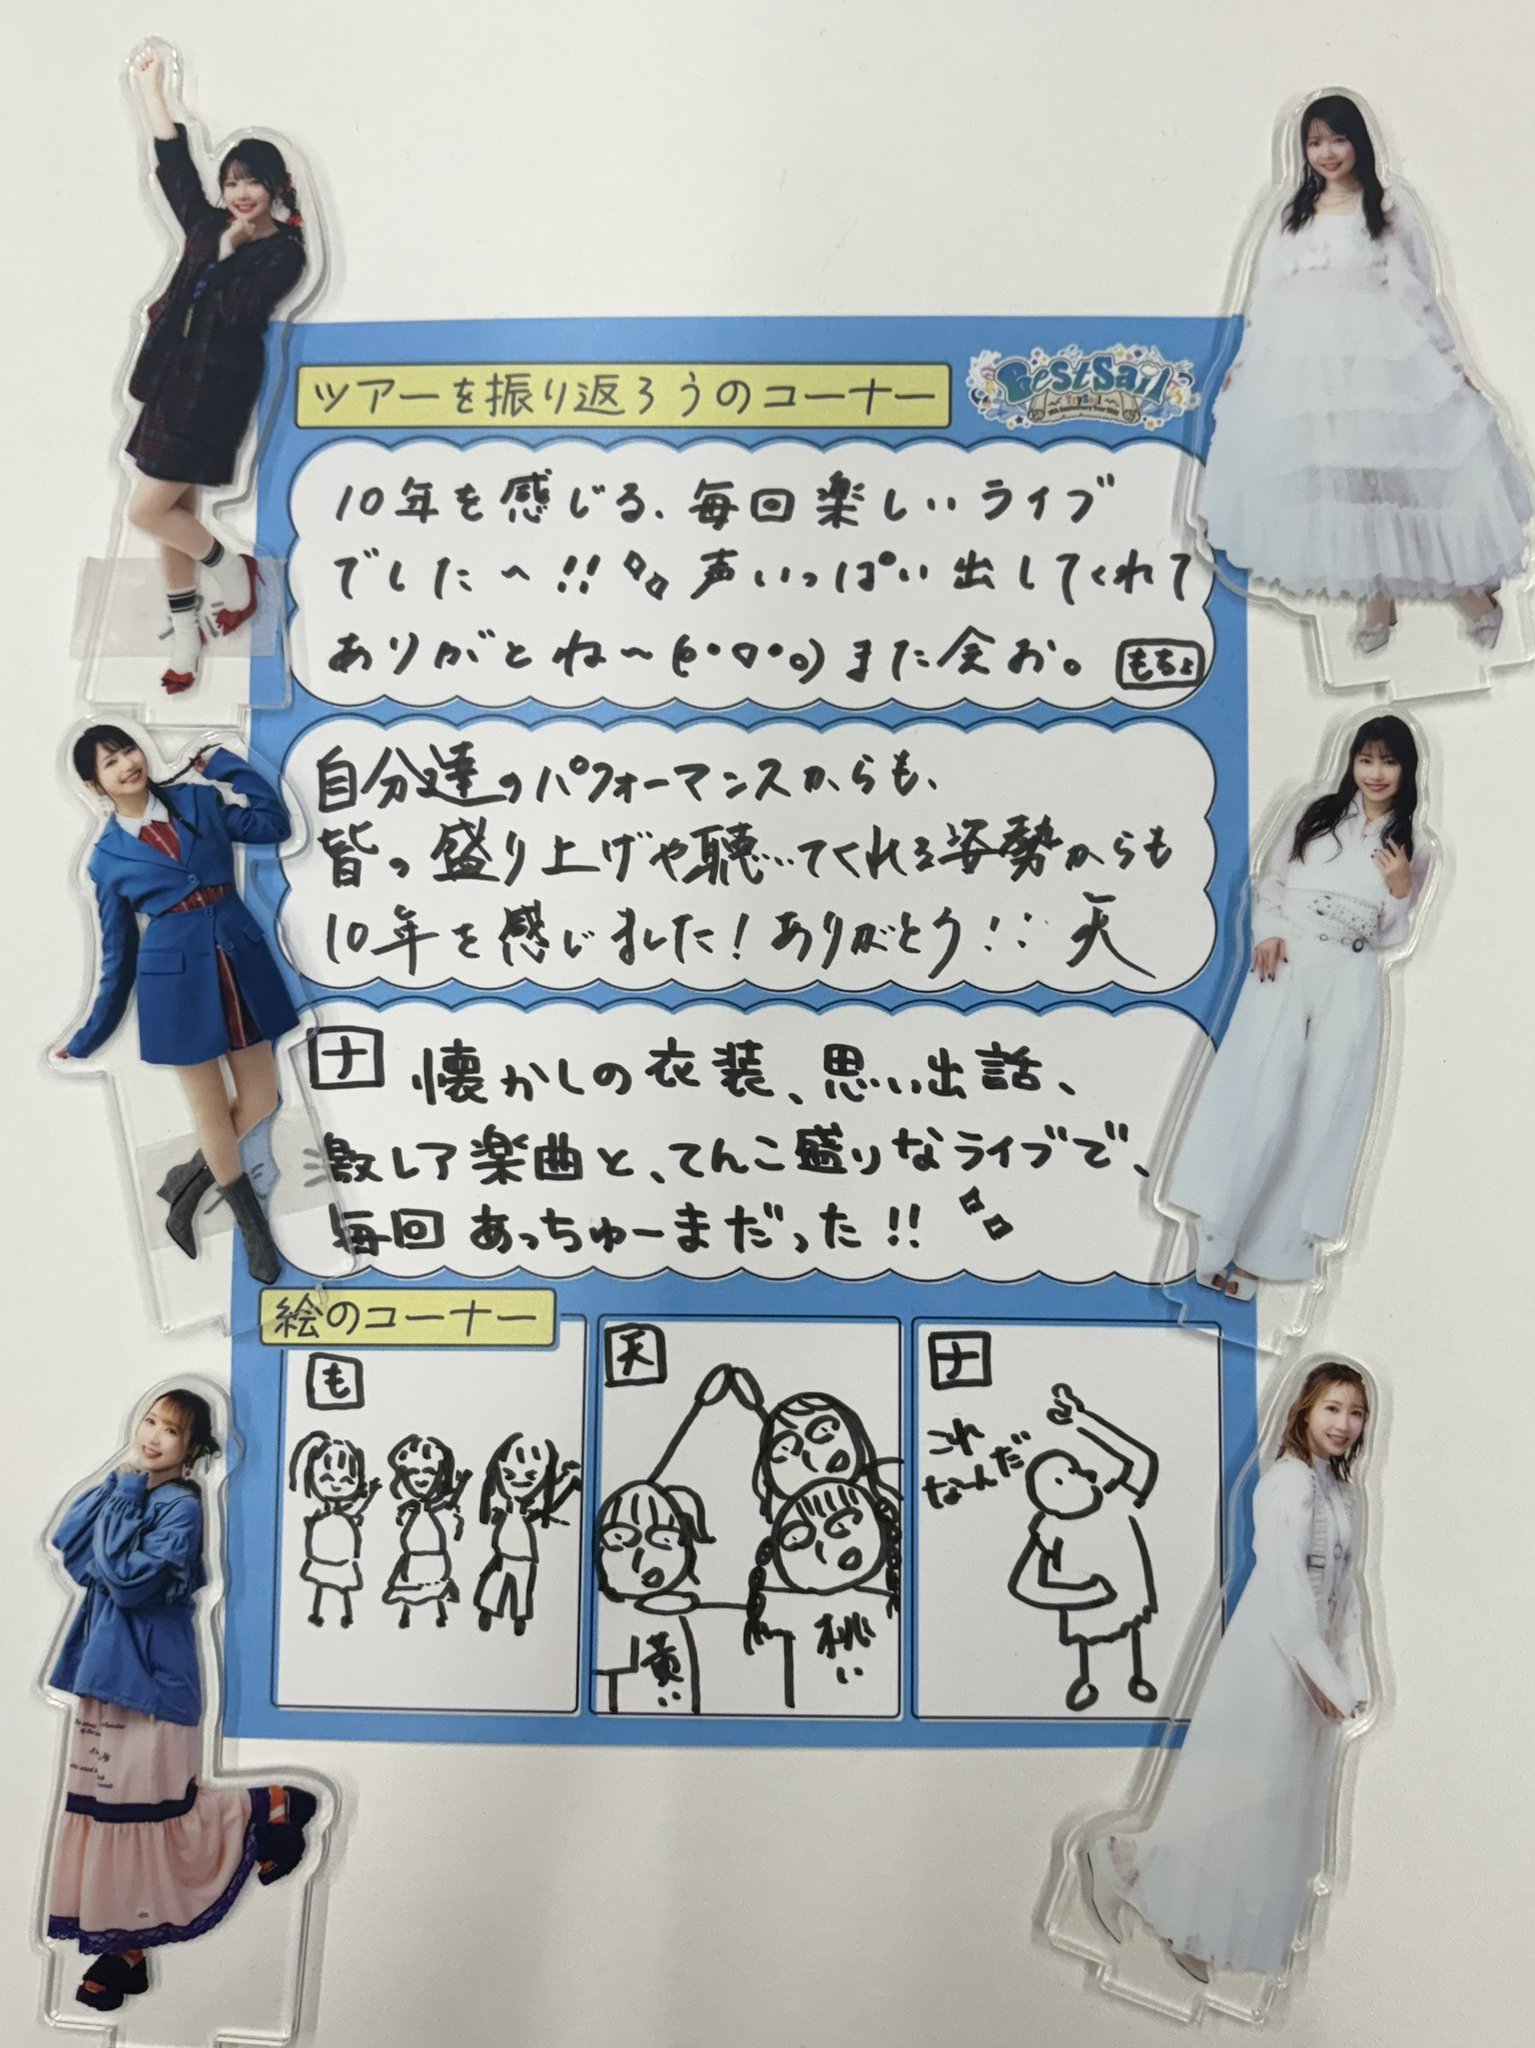 ツアーを振り返ろうのコーナー
BestSail
TrySail
10th Anniversary Tour 2025
10年を感じる、毎回楽しいライブ
でした〜!! 声いっぱい出してくれて
ありがとね〜 また会お。 もちょ
自分達のパフォーマンスからも、
皆の盛り上げや聴いてくれる姿勢からも
10年を感じました！ありがとう！ 天
ナ 懐かしの衣装、思い出話、
激レア楽曲と、てんこ盛りなライブで、
毎回あっちゅーまだった!!
絵のコーナー
も
天
黄い
桃い
ナ
これ
なーんだ